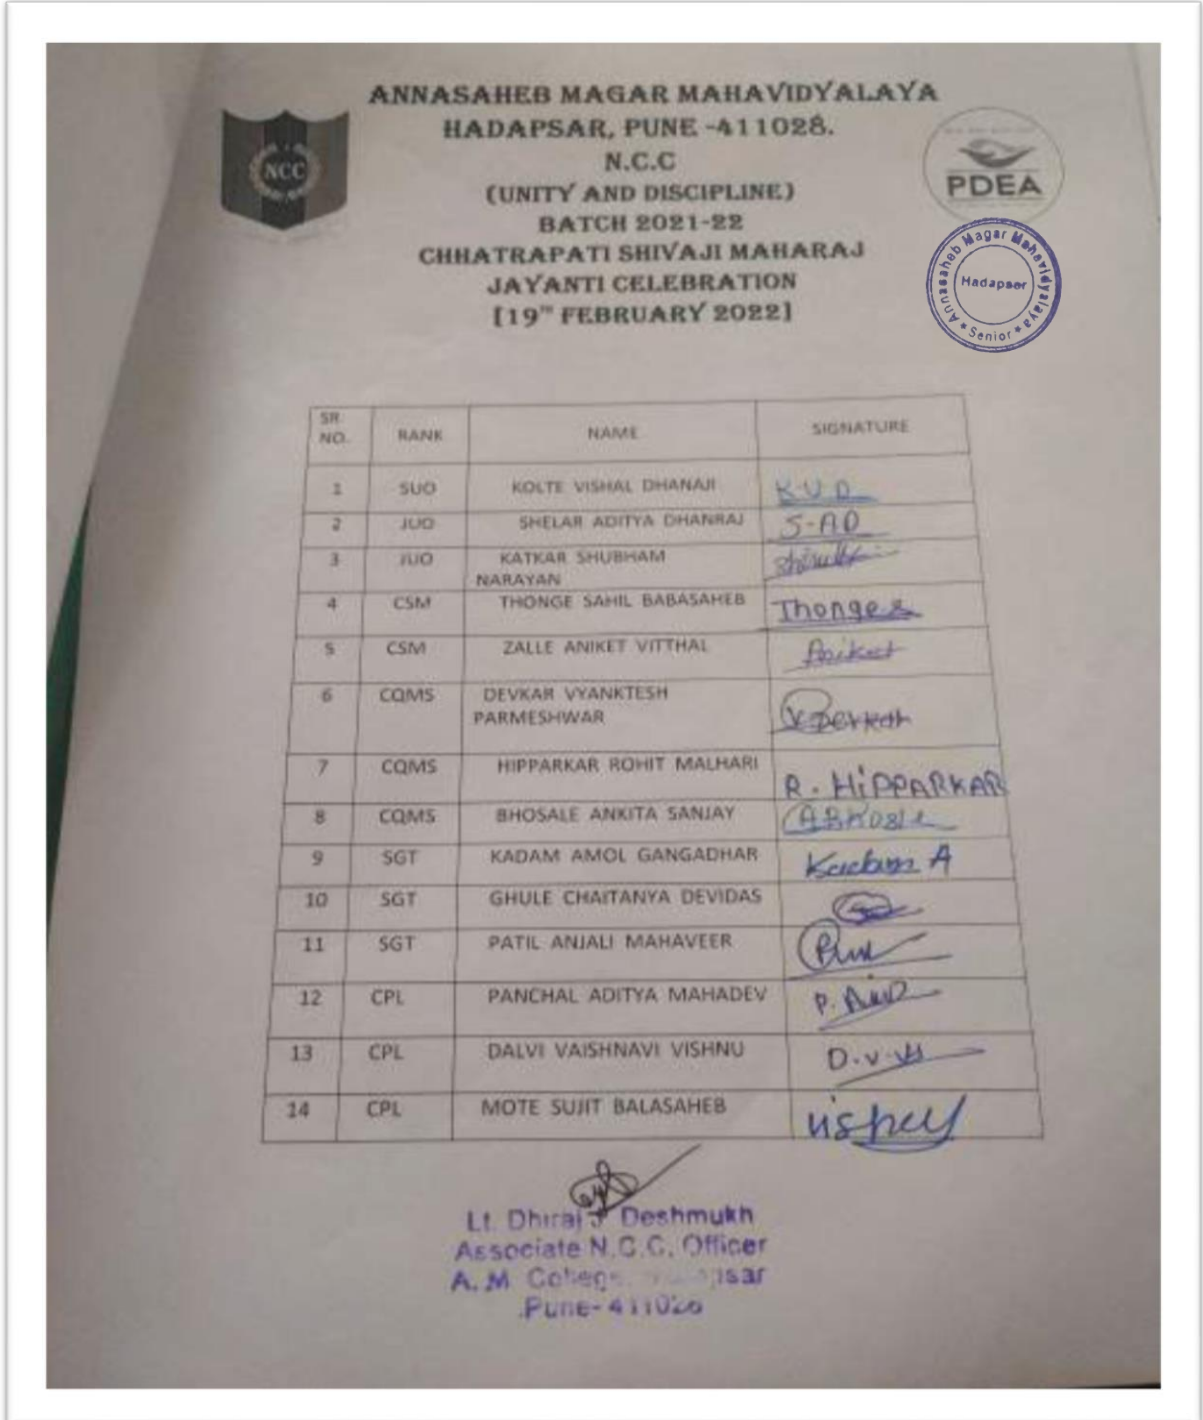 ANNASAHEB MAGAR MAHAVIDYALAYA
HADAPSAR, PUNE -411028.
N.C.C
(UNITY AND DISCIPLINE)
BATCH 2021-22
CHHATRAPATI SHIVAJI MAHARAJ
JAYANTI CELEBRATION
[19TH FEBRUARY 2022]
NCC
PDEA
Annasaheb Magar Mahavidyalaya
Hadapser
* Senior *
SR. NO. RANK NAME SIGNATURE
1 SUO KOLTE VISHAL DHANAJI K.V.D
2 JUO SHELAR ADITYA DHANRAJ S-AD
3 JUO KATKAR SHUBHAM
NARAYAN
4 CSM THONGE SAHIL BABASAHEB Thonge s
5 CSM ZALLE ANIKET VITTHAL Aniket
6 CQMS DEVKAR VYANKTESH
PARMESHWAR V Devkar
7 CQMS HIPPARKAR ROHIT MALHARI R. HIPPARKAR
8 CQMS BHOSALE ANKITA SANJAY
9 SGT KADAM AMOL GANGADHAR Kadam A
10 SGT GHULE CHAITANYA DEVIDAS
11 SGT PATIL ANJALI MAHAVEER
12 CPL PANCHAL ADITYA MAHADEV
13 CPL DALVI VAISHNAVI VISHNU D.V.V
14 CPL MOTE SUJIT BALASAHEB
Lt. Dhiraj J Deshmukh
Associate N.C.C. Officer
A. M. College,
Pune- 411028